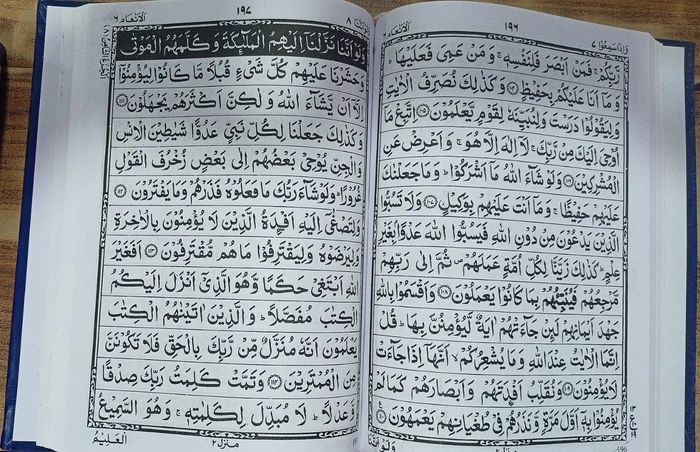 وَاِذَا سَمِعُوْا ٧
١٩٦
اَلْاَنْعَام ٦
رَّبِّكُمْ ۚ فَمَنْ اَبْصَرَ فَلِنَفْسِهٖ ۚ وَ مَنْ عَمِیَ فَعَلَیْهَا ؕ
وَ مَاۤ اَنَا عَلَیْكُمْ بِحَفِیْظٍ ﴿١٠٤﴾ وَ كَذٰلِكَ نُصَرِّفُ الْاٰیٰتِ
وَ لِیَقُوْلُوْا دَرَسْتَ وَ لِنُبَیِّنَهٗ لِقَوْمٍ یَّعْلَمُوْنَ ﴿١٠٥﴾ اِتَّبِعْ مَاۤ
اُوْحِیَ اِلَیْكَ مِنْ رَّبِّكَ ۚ لَاۤ اِلٰهَ اِلَّا هُوَ ۚ وَ اَعْرِضْ عَنِ
الْمُشْرِكِیْنَ ﴿١٠٦﴾ وَ لَوْ شَآءَ اللّٰهُ مَاۤ اَشْرَكُوْا ؕ وَ مَا جَعَلْنٰكَ
عَلَیْهِمْ حَفِیْظًا ۚ وَ مَاۤ اَنْتَ عَلَیْهِمْ بِوَكِیْلٍ ﴿١٠٧﴾ وَ لَا تَسُبُّوا
الَّذِیْنَ یَدْعُوْنَ مِنْ دُوْنِ اللّٰهِ فَیَسُبُّوا اللّٰهَ عَدْوًۢا بِغَیْرِ
عِلْمٍ ؕ كَذٰلِكَ زَیَّنَّا لِكُلِّ اُمَّةٍ عَمَلَهُمْ ۪ ثُمَّ اِلٰی رَبِّهِمْ
مَّرْجِعُهُمْ فَیُنَبِّئُهُمْ بِمَا كَانُوْا یَعْمَلُوْنَ ﴿١٠٨﴾ وَ اَقْسَمُوْا بِاللّٰهِ
جَهْدَ اَیْمَانِهِمْ لَئِنْ جَآءَتْهُمْ اٰیَةٌ لَّیُؤْمِنُنَّ بِهَا ؕ قُلْ
اِنَّمَا الْاٰیٰتُ عِنْدَ اللّٰهِ وَ مَا یُشْعِرُكُمْ ۙ اَنَّهَاۤ اِذَا جَآءَتْ
لَا یُؤْمِنُوْنَ ﴿١٠٩﴾ وَ نُقَلِّبُ اَفْـِٕدَتَهُمْ وَ اَبْصَارَهُمْ كَمَا لَمْ
یُؤْمِنُوْا بِهٖۤ اَوَّلَ مَرَّةٍ وَّ نَذَرُهُمْ فِیْ طُغْیَانِهِمْ یَعْمَهُوْنَ ﴿١١٠﴾
وَ لَوْ اَنَّنَا
منزل ٢
196
١٩٧
اَلْاَنْعَام ٦
وَ لَوْ اَنَّنَا نَزَّلْنَاۤ اِلَیْهِمُ الْمَلٰٓئِكَةَ وَ كَلَّمَهُمُ الْمَوْتٰی
وَ حَشَرْنَا عَلَیْهِمْ كُلَّ شَیْءٍ قُبُلًا مَّا كَانُوْا لِیُؤْمِنُوْۤا
اِلَّاۤ اَنْ یَّشَآءَ اللّٰهُ وَ لٰكِنَّ اَكْثَرَهُمْ یَجْهَلُوْنَ ﴿١١١﴾
وَ كَذٰلِكَ جَعَلْنَا لِكُلِّ نَبِیٍّ عَدُوًّا شَیٰطِیْنَ الْاِنْسِ
وَ الْجِنِّ یُوْحِیْ بَعْضُهُمْ اِلٰی بَعْضٍ زُخْرُفَ الْقَوْلِ
غُرُوْرًا ؕ وَ لَوْ شَآءَ رَبُّكَ مَا فَعَلُوْهُ فَذَرْهُمْ وَ مَا یَفْتَرُوْنَ ﴿١١٢﴾
وَ لِتَصْغٰۤی اِلَیْهِ اَفْـِٕدَةُ الَّذِیْنَ لَا یُؤْمِنُوْنَ بِالْاٰخِرَةِ
وَ لِیَرْضَوْهُ وَ لِیَقْتَرِفُوْا مَا هُمْ مُّقْتَرِفُوْنَ ﴿١١٣﴾ اَفَغَیْرَ
اللّٰهِ اَبْتَغِیْ حَكَمًا وَّ هُوَ الَّذِیْۤ اَنْزَلَ اِلَیْكُمُ
الْكِتٰبَ مُفَصَّلًا ؕ وَ الَّذِیْنَ اٰتَیْنٰهُمُ الْكِتٰبَ
یَعْلَمُوْنَ اَنَّهٗ مُنَزَّلٌ مِّنْ رَّبِّكَ بِالْحَقِّ فَلَا تَكُوْنَنَّ
مِنَ الْمُمْتَرِیْنَ ﴿١١٤﴾ وَ تَمَّتْ كَلِمَتُ رَبِّكَ صِدْقًا
وَّ عَدْلًا ؕ لَا مُبَدِّلَ لِكَلِمٰتِهٖ ۚ وَ هُوَ السَّمِیْعُ
الْعَلِیْمُ
منزل ٢